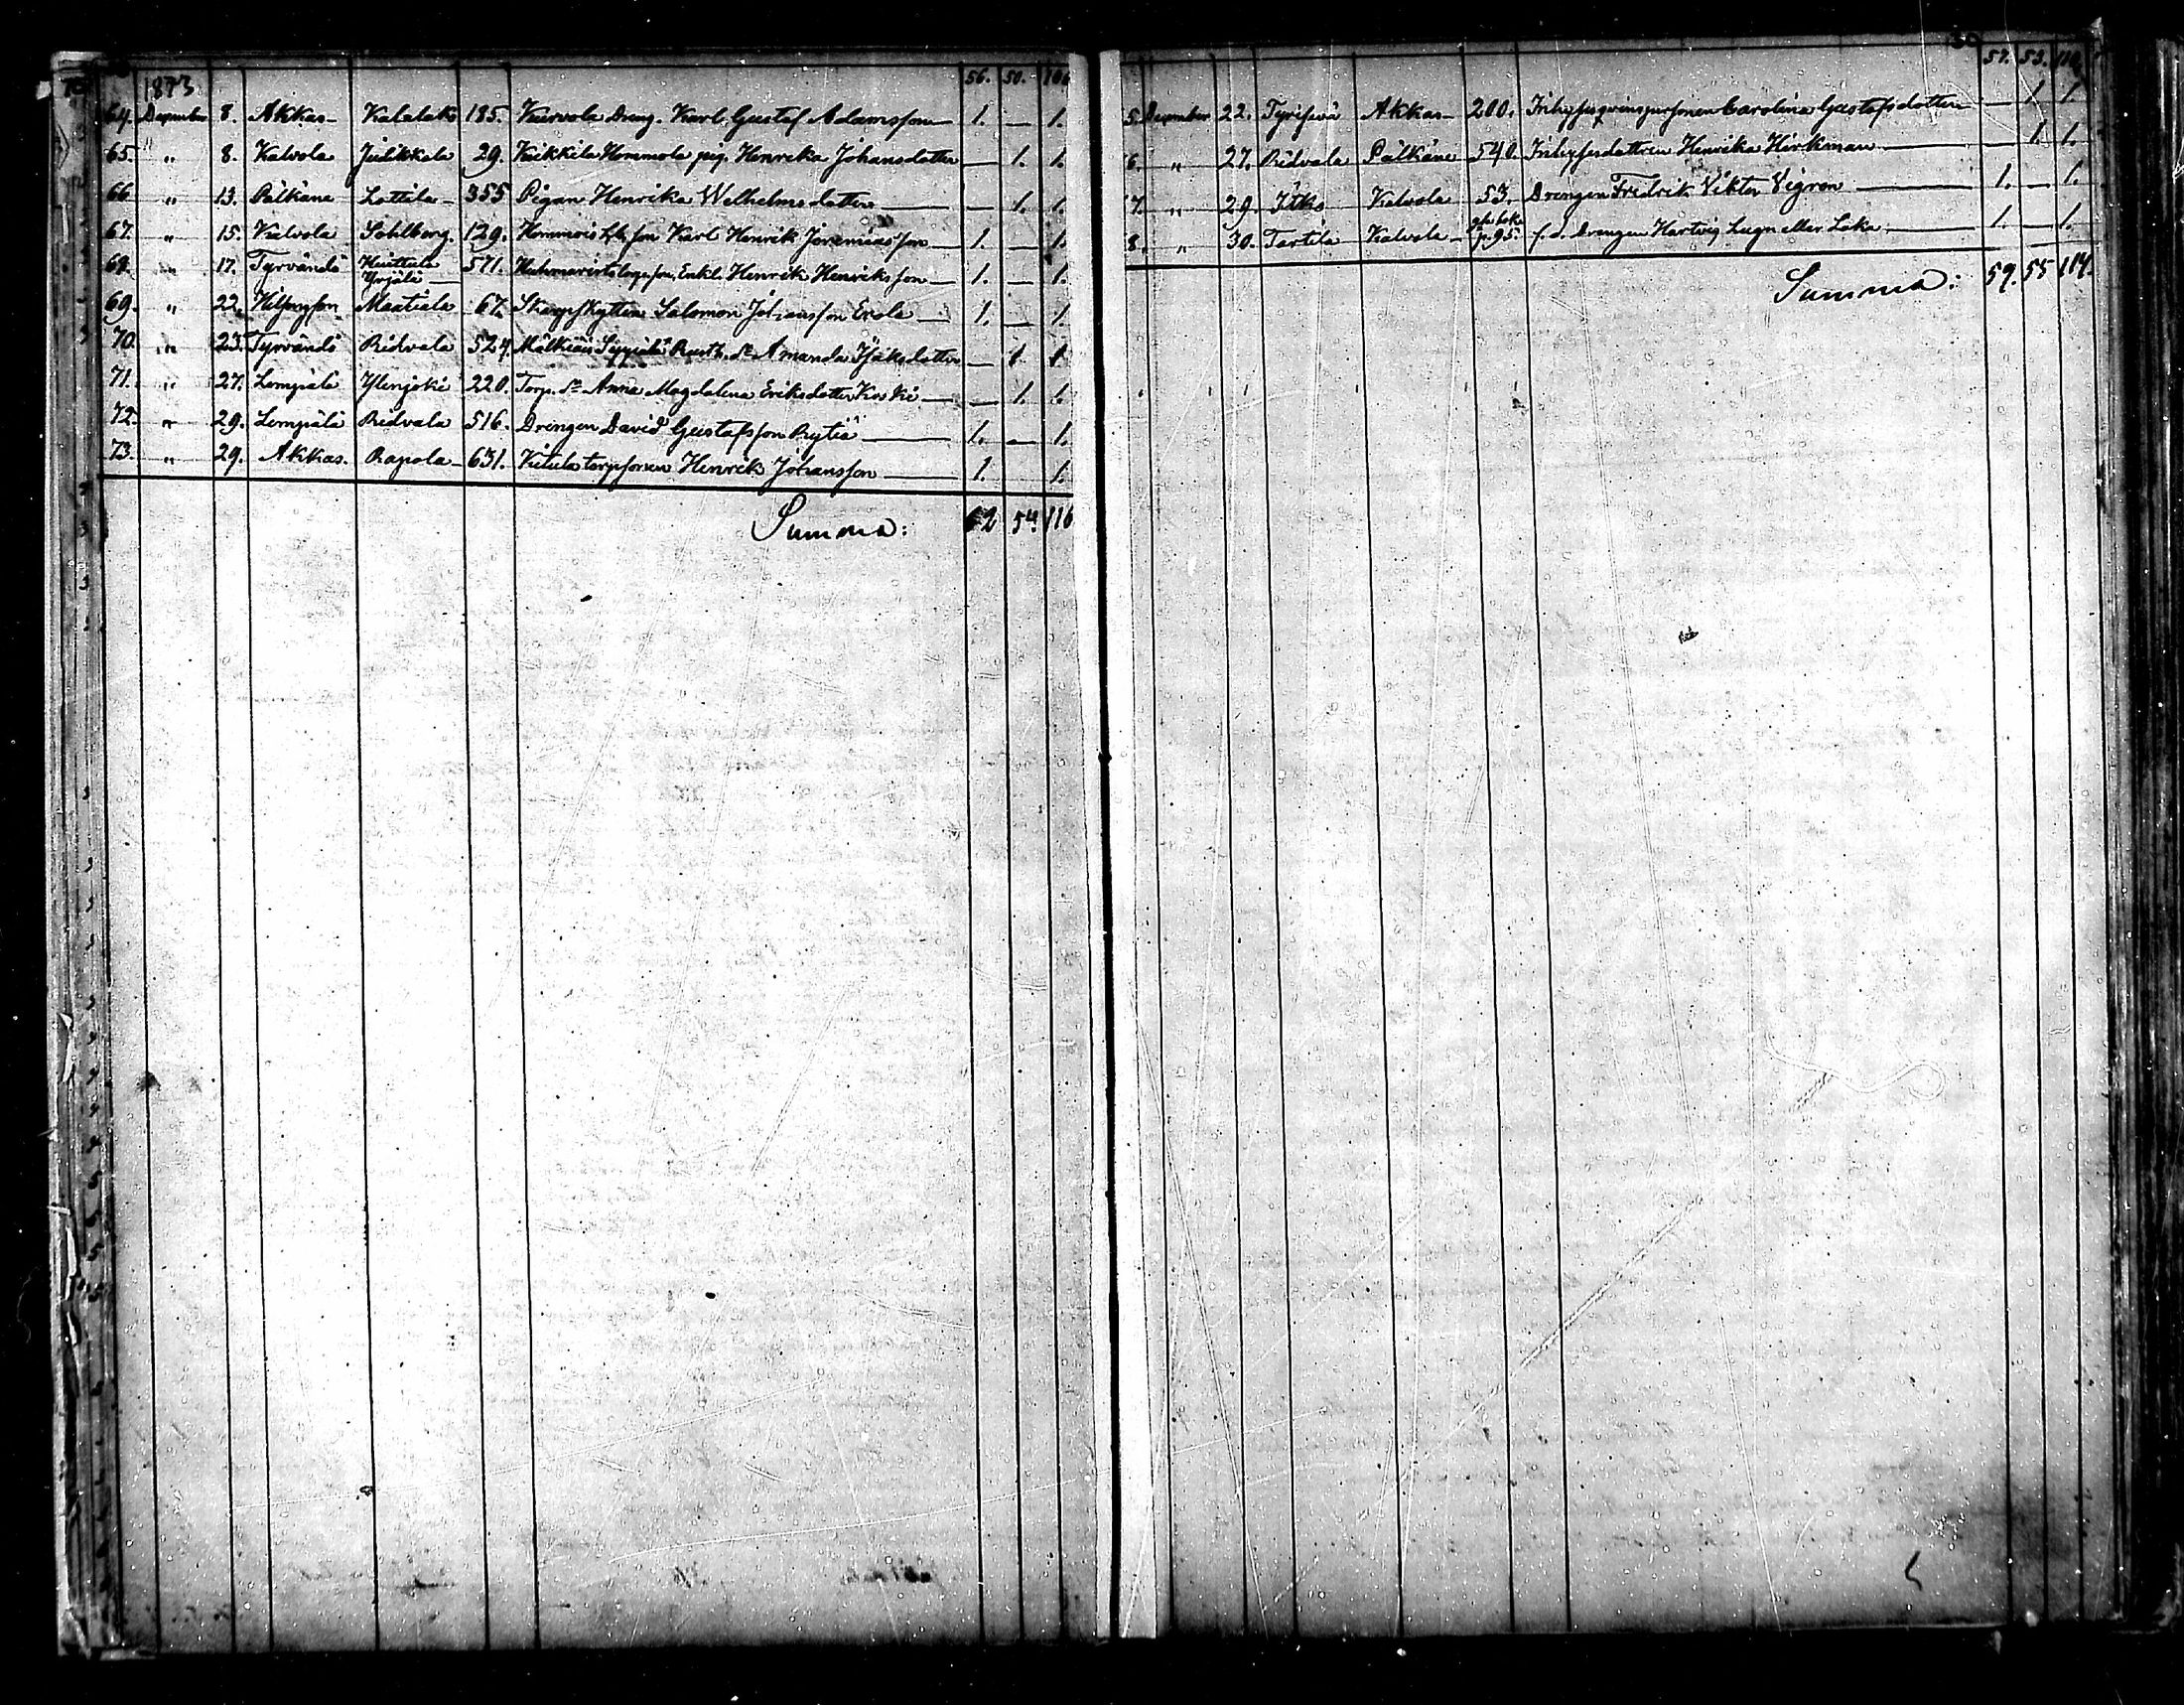 1873 56. 50. 106
64. December 8. Akkas Kalalaks 185. Kurvola Dreng. Karl Gustaf Adamsson 1. — 1.
65. " 8. Kalvola Jutikkala 29. Kuikkila Hommola pig. Henrika Johansdotter — 1. 1.
66 " 13. Pälkäne Lottila 355 Pigan Henrika Wilhelmsdotter — 1. 1.
67. " 15. Kalvola Sohlberg. 129. Karl Henrik Jeremiasson 1. — 1.
68. " 17. Tyrvändö Huittula Yrjälä 571. Enkl. Henrik Henriksson 1. — 1.
69. " 22. Maatiala 67. Skarpskytten Salomon Johansson Erola 1. — 1.
70. " 23. Tyrvändö Ridvala 524. Mälkiäis Rusth. dr Amanda Isaksdotter — 1. 1.
71. " 27. Lempiälä Ylenjoki 220. Torp. dr Anna Magdalena Eriksdotter Koski — 1. 1.
72. " 29. Lempiälä Ridvala 516. Drengen David Gustafsson Rytiä 1. — 1.
73. " 29. Akkas. Rapola 631. Kiliula torpsonen Henrik Johansson 1. 1.
Summa: 62 54. 116
57. 53. 110
5. December 22. Akkas 200. Inhysesqvinspersonen Carolina Gustafsdotter — 1. 1.
6. " 27. Ridvala Pälkäne 540. Inhysesdottren Henrika Hirkman — 1. 1.
7. " 29. Jtko Kalvola 53. Drengen Fredrik Viktor Vigron 1. — 1.
8. " 30. Tartila Kalvola p. 95. f. d. Drengen Hartvig Lugn eller Laka 1. — 1.
Summa: 59. 55 114.